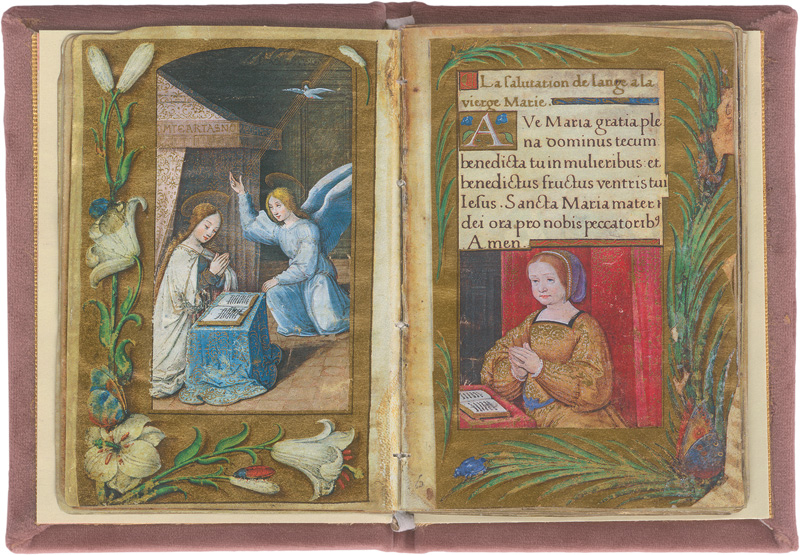 La salutation de lange a la
vierge Marie.
AVe Maria gratia ple
na dominus tecum
benedicta tu in mulieribus et
benedictus fructus ventris tui
Iesus. Sancta Maria mater
dei ora pro nobis peccatorib⁹
Amen.